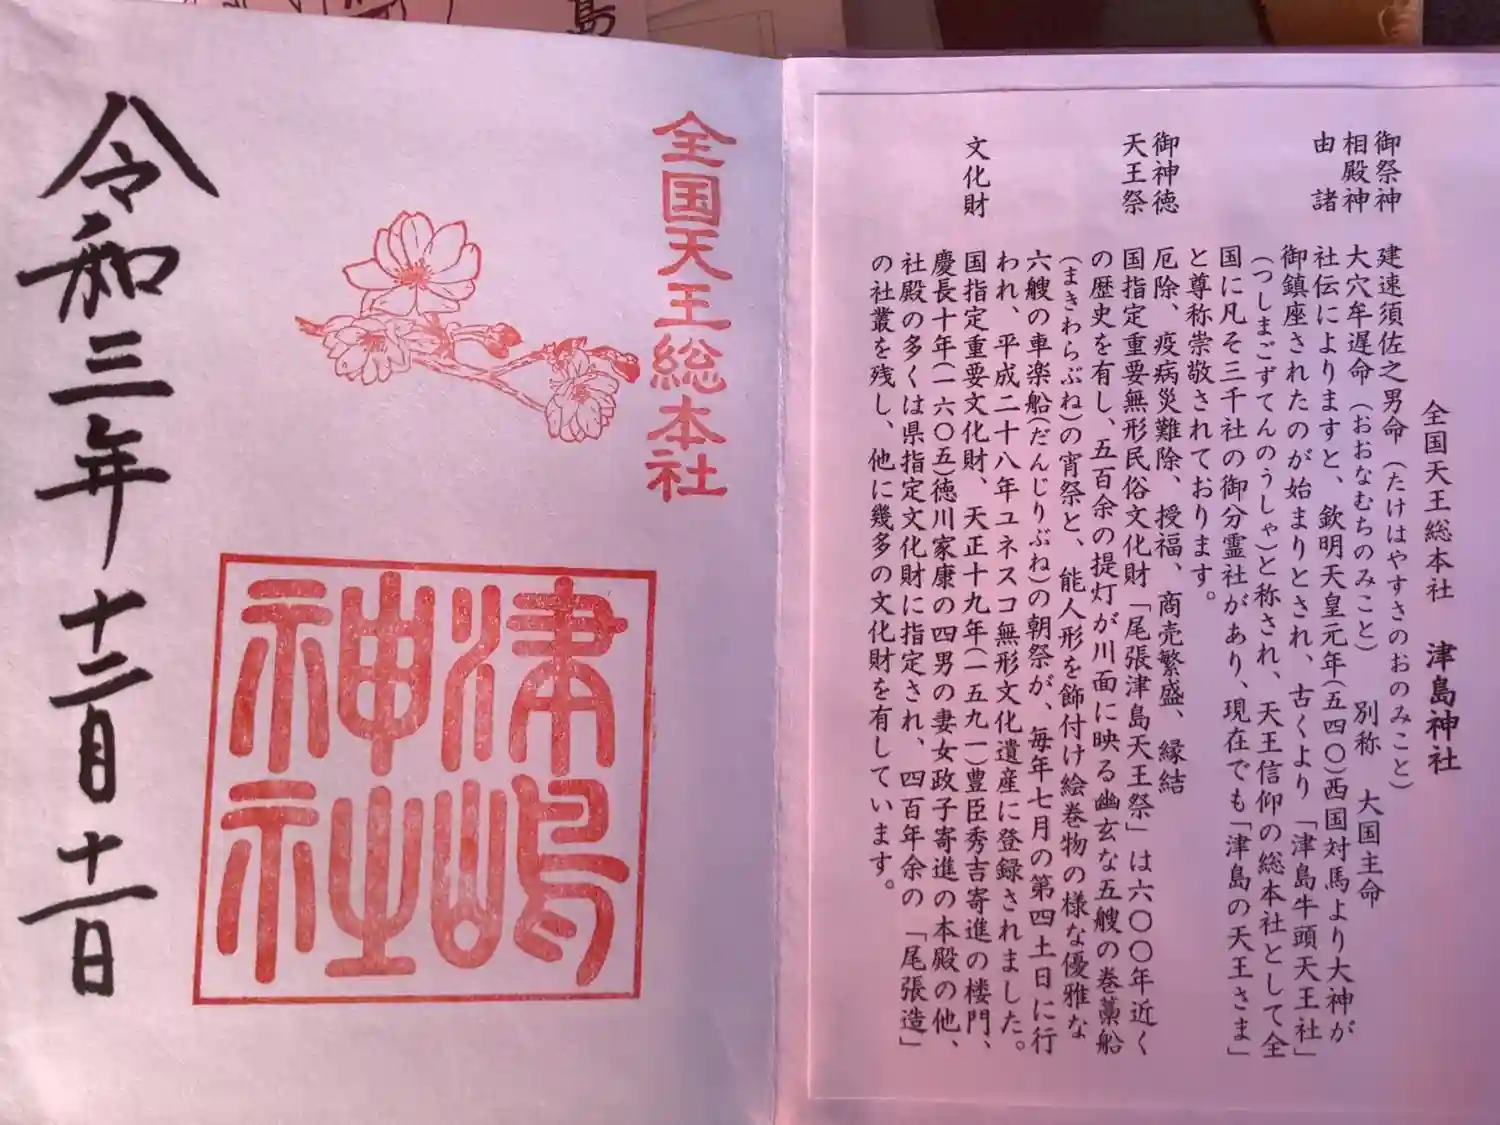 全国天王総本社　津島神社
御祭神　建速須佐之男命（たけはやすさのおのみこと）
相殿神　大穴牟遅命（おおなむちのみこと）　別称　大国主命
由諸　社伝によりますと、欽明天皇元年(五四〇)西国対馬より大神が
御鎮座されたのが始まりとされ、古くより「津島牛頭天王社」
(つしまごずてんのうしゃ)と称され、天王信仰の総本社として全
国に凡そ三千社の御分霊社があり、現在でも「津島の天王さま」
と尊称崇敬されております。
御神徳　厄除、疫病災難除、授福、商売繁盛、縁結
天王祭　国指定重要無形民俗文化財「尾張津島天王祭」は六〇〇年近く
の歴史を有し、五百余の提灯が川面に映る幽玄な五艘の巻藁船
(まきわらぶね)の宵祭と、能人形を飾付け絵巻物の様な優雅な
六艘の車楽船(だんじりぶね)の朝祭が、毎年七月の第四土日に行
われ、平成二十八年ユネスコ無形文化遺産に登録されました。
文化財　国指定重要文化財、天正十九年(一五九一)豊臣秀吉寄進の楼門、
慶長十年(一六〇五)徳川家康の四男の妻女政子寄進の本殿の他、
社殿の多くは県指定文化財に指定され、四百年余の「尾張造」
の社叢を残し、他に幾多の文化財を有しています。
全国天王総本社
津嶋
神社
令和三年十二月十一日
島